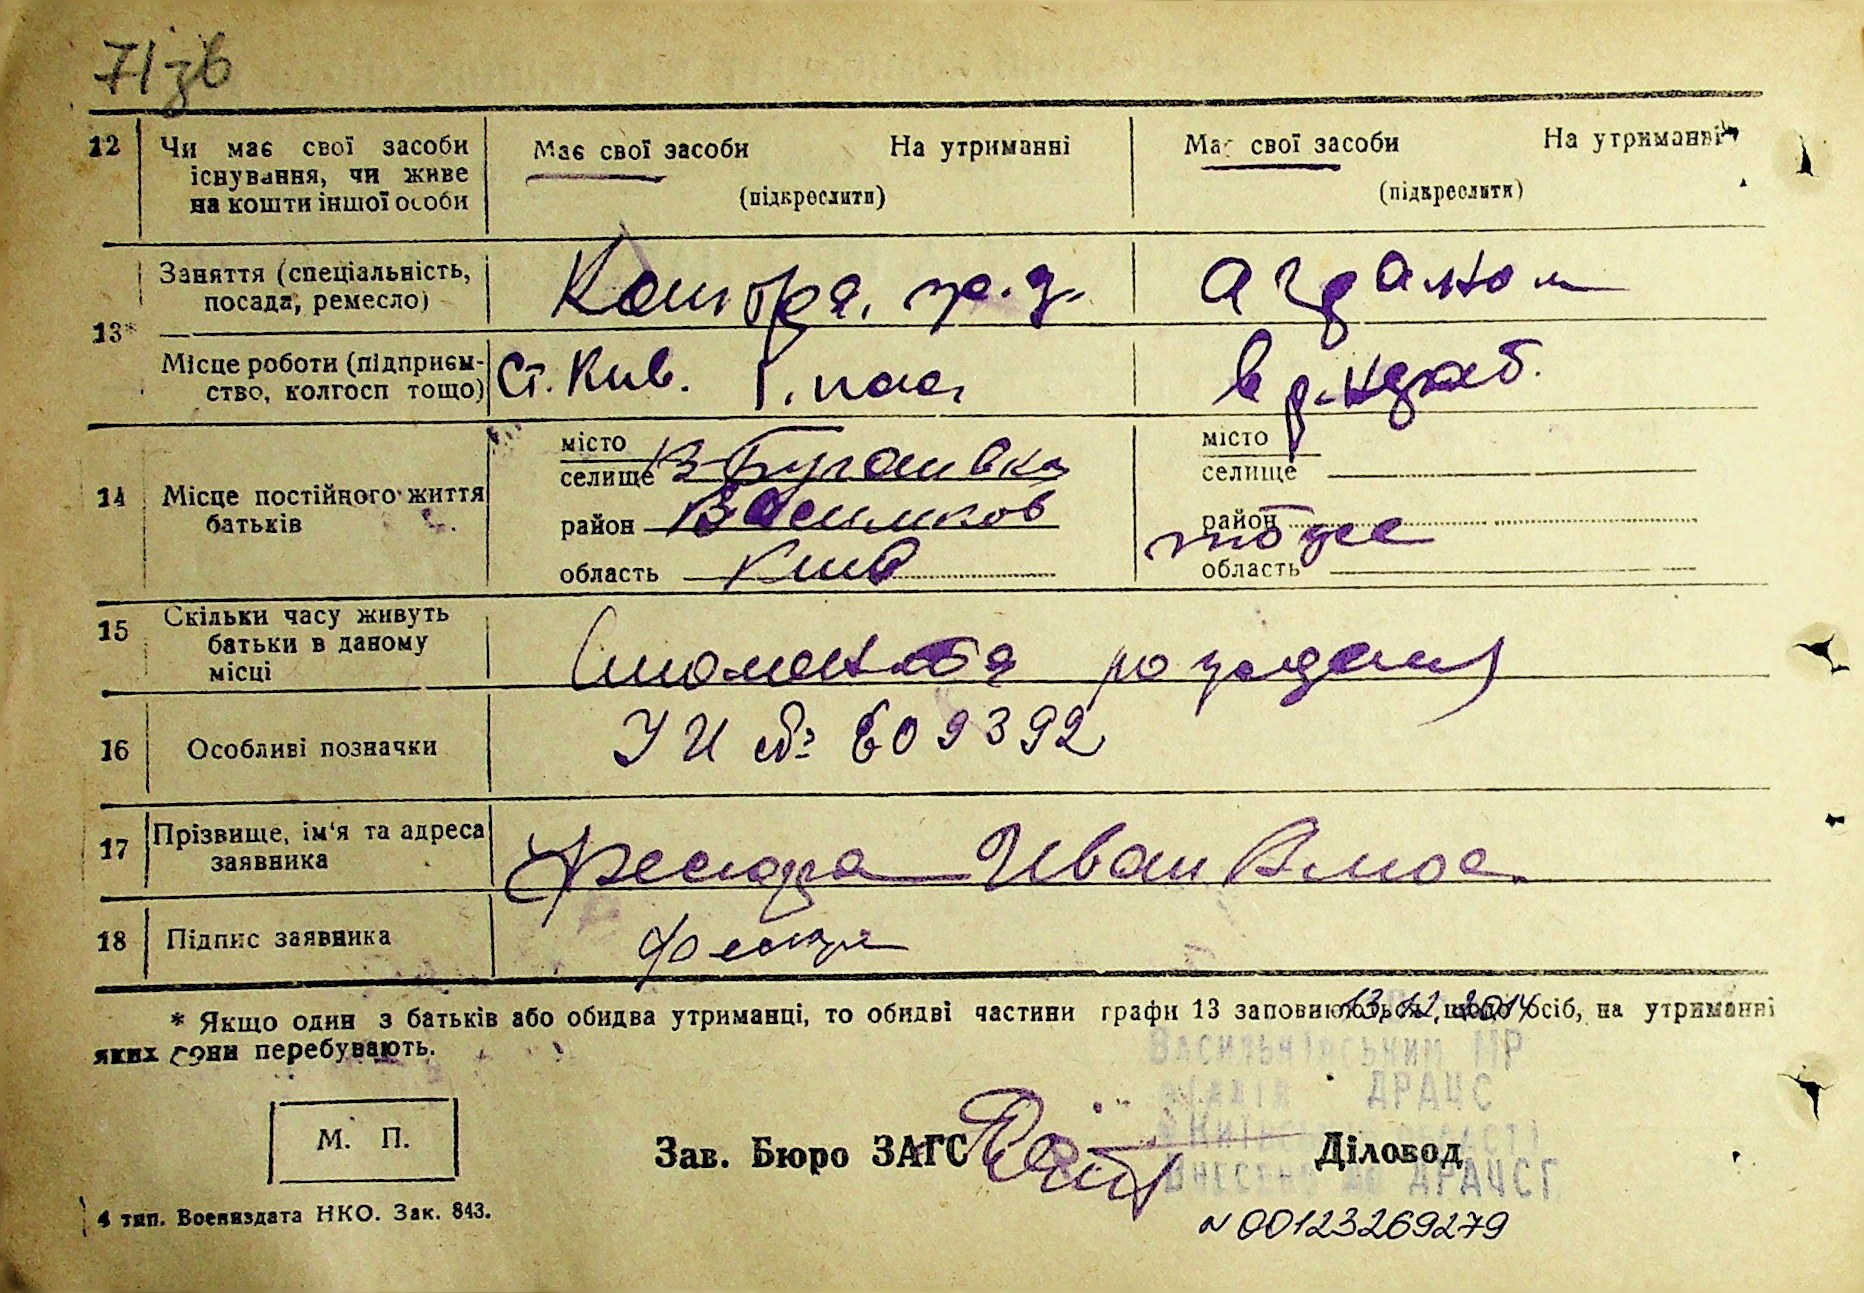 71зв
12 Чи має свої засоби існування, чи живе на кошти іншої особи
Має свої засоби На утриманні
(підкреслити)
Має свої засоби На утриманні
(підкреслити)
13*
Заняття (спеціальність, посада, ремесло)
Місце роботи (підприєм-
ство, колгосп тощо)
Ст. Киів.
14 Місце постійного життя батьків
місто
селище В Бугаивка
район Васильков
область Киів
місто
селище
район
тоже
область
15 Скільки часу живуть батьки в даному місці
с момента рождения
16 Особливі позначки
УИ № 609392
17 Прізвище, ім'я та адреса заявника
Иван
18 Підпис заявника
* Якщо один з батьків або обидва утриманці, то обидві частини графи 13 заповнюються щодо осіб, на утриманні
яких вони перебувають.
13.12.2014
Васильківським МР
відділ ДРАЦС
Київської області
Внесено до ДРАЦСГ
М. П.
Зав. Бюро ЗАГС
Діловод
4 тип. Воениздата НКО. Зак. 843.
N 00123269279